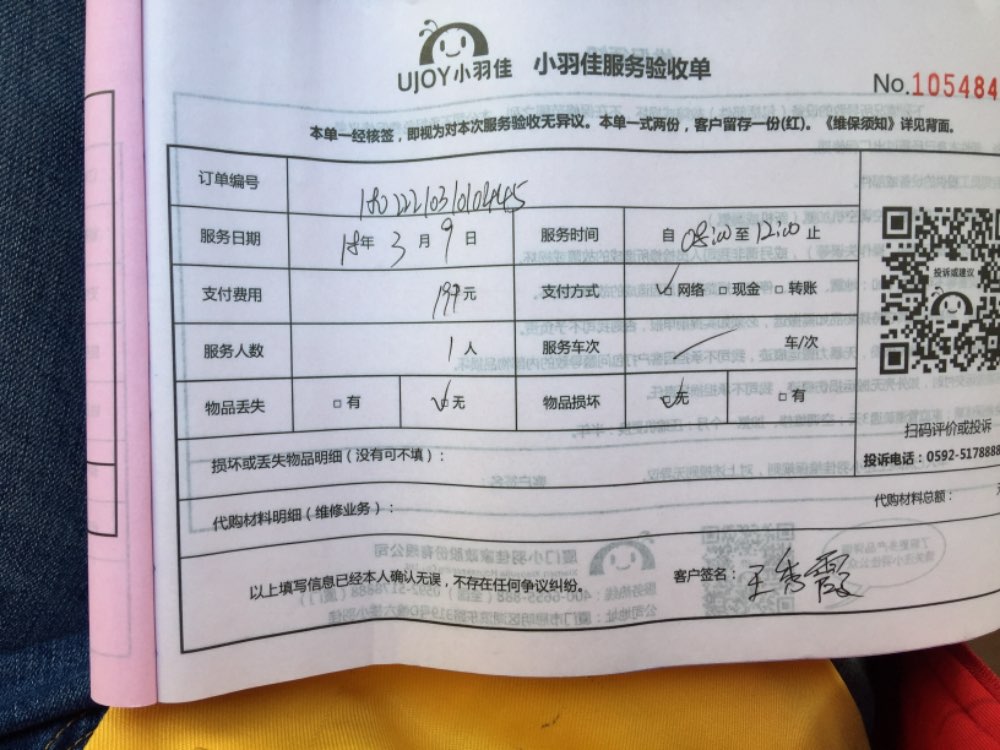 UJOY小羽佳 小羽佳服务验收单
No.105484
本单一经核签，即视为对本次服务验收无异议。本单一式两份，客户留存一份(红)。《维保须知》详见背面。
订单编号
服务日期 18年 3月 9日 服务时间 自 08:00 至 12:00 止
支付费用 199元 支付方式 网络 现金 转账
服务人数 1人 服务车次 车/次
物品丢失 有 无 物品损坏 无 有
投诉或建议
扫码评价或投诉
损坏或丢失物品明细（没有可不填）：
投诉电话：0592-5178888
代购材料明细（维修业务）： 代购材料总额：
以上填写信息已经本人确认无误，不存在任何争议纠纷。 客户签名：王秀霞